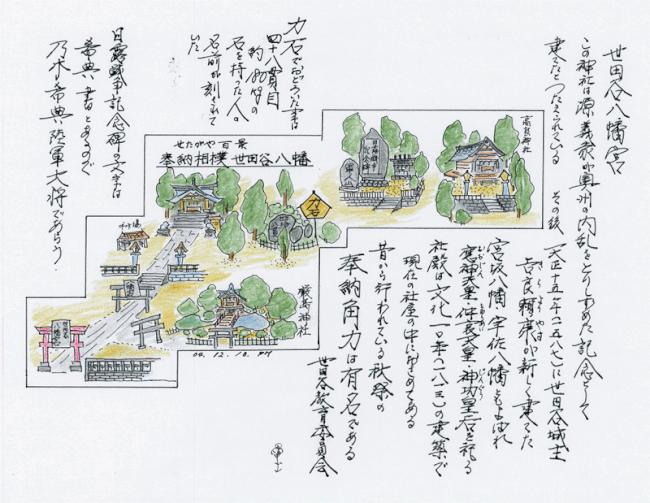 世田谷八幡宮
この神社は源義家が奥州の内乱をとりしずめた記念として
建てたとつたえられている その後
天正十五年(一五八七)に世田谷城主
吉良頼康が新しく建てた
きらよりやす
宮坂八幡 宇佐八幡ともよばれ
応神天皇・仲哀天皇・神功皇后を祀る
社殿は文化一〇年(一八一三)の建築で
現在の社屋の中に納めてある
昔から行われている秋祭の
奉納角力は有名である
世田谷教育委員会
力石でおどろいた事は
四十八貫目
約180kgの
石を持った人の
名前が刻まれて
いた
日露戦争記念碑の文字は
希典書とあるので
乃木希典陸軍大将であろう.
せたがや百景
奉納相撲 世田谷八幡
力石
高良神社
厳島神社
04.12.18. PM